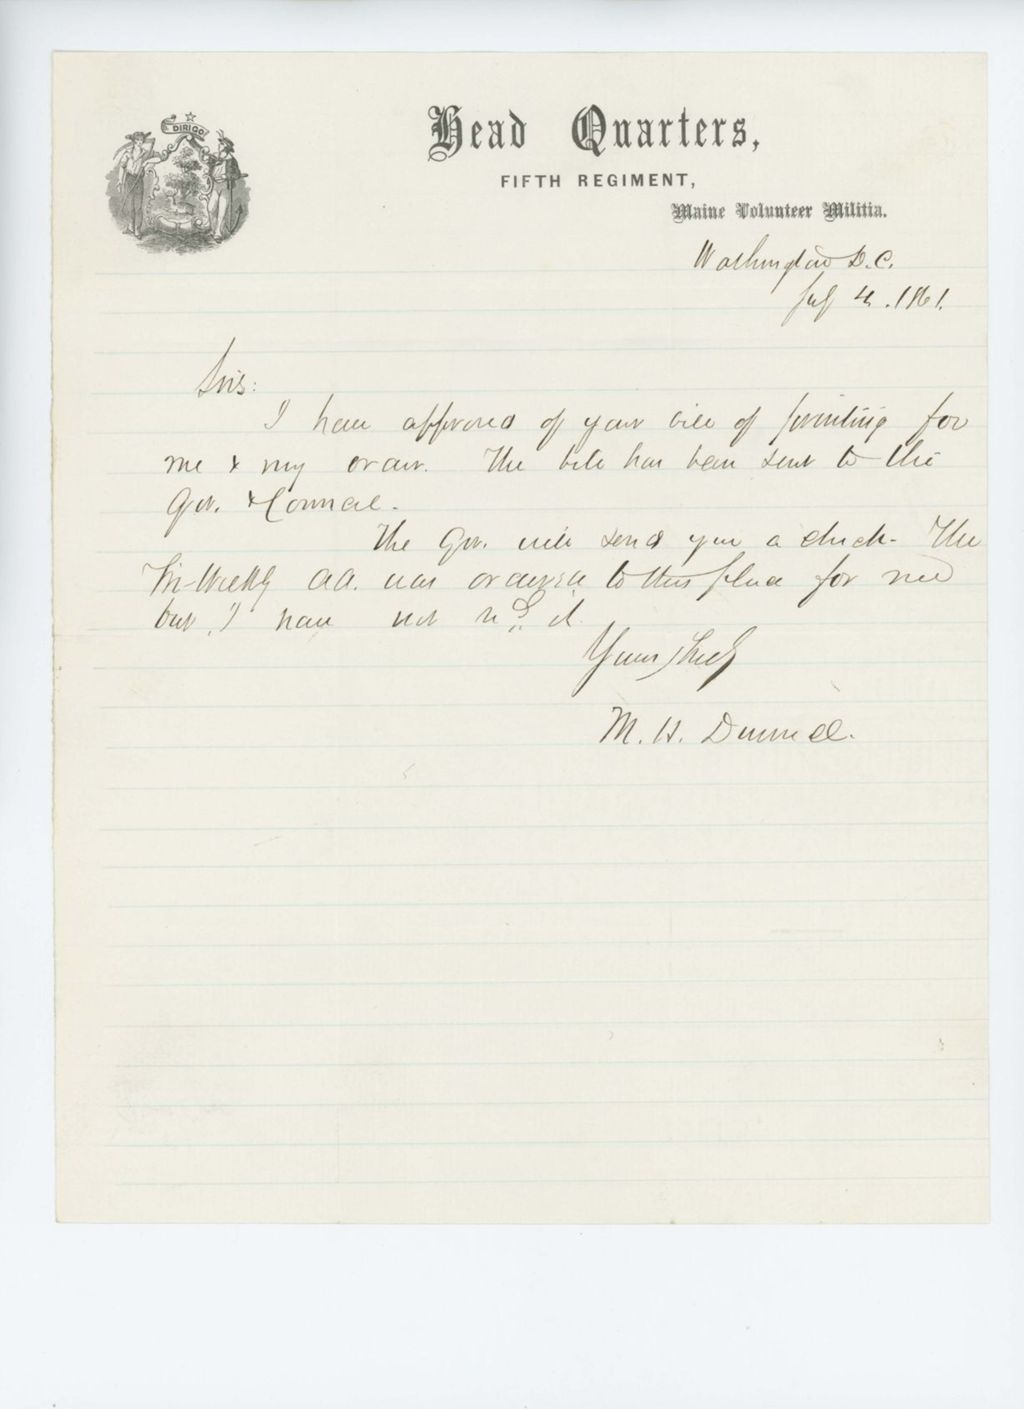 DIRIGO
Head Quarters,
FIFTH REGIMENT,
Maine Volunteer Militia.
Washington D.C.
July 4, 1861.
Sirs:
I have approved of your bill of printing for
me & my order. The bill has been sent to the
Gov. & Council.
The Gov. will send you a check. The
Tri-Weekly ad. was ordered to this place for me
but I have not recd it.
Yours Truly
M. H. Dunnell.